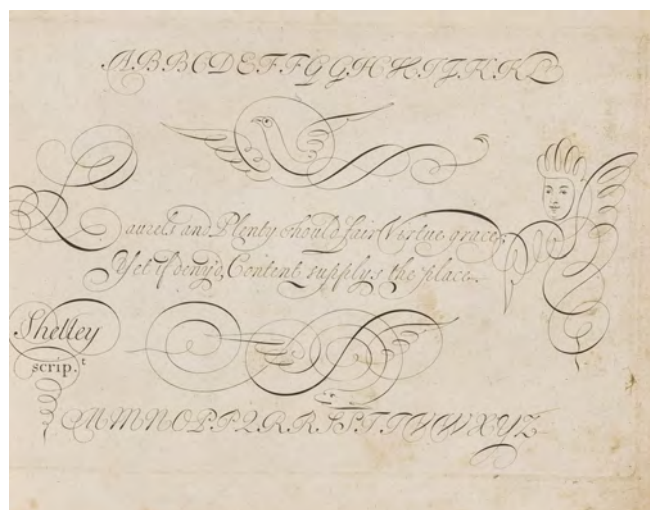 A B B C D E F F G G H H I J K K L
Laurels and Plenty should fair Virtue grace;
Yet if deny'd, Content supplys the place.
Shelley
scrip.t
M M N O P P Q R R S S T T V W X Y Z